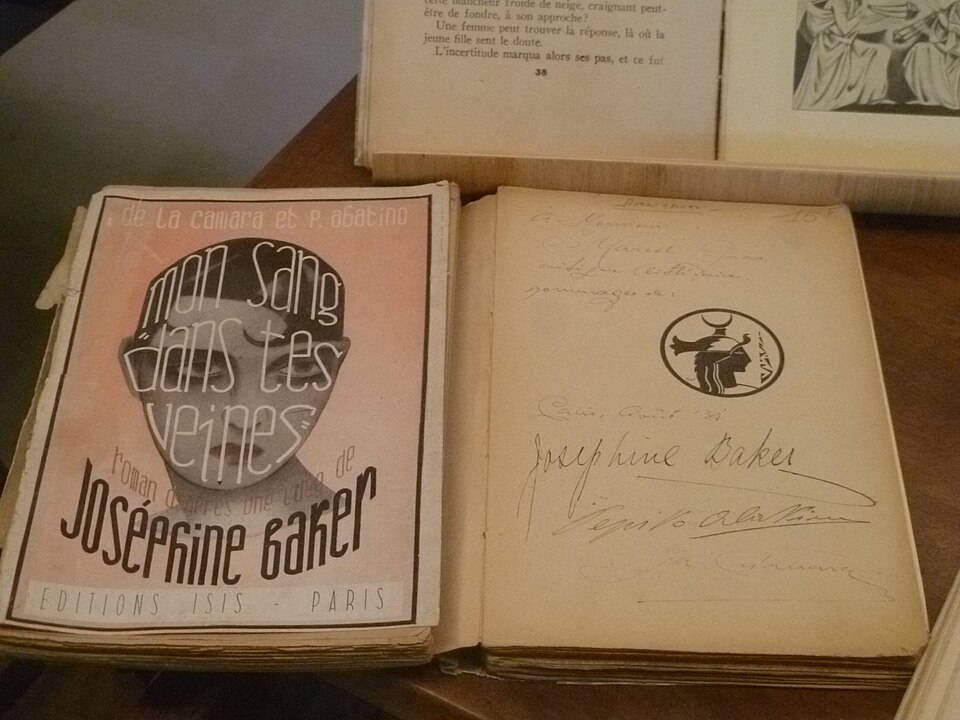 cette blancheur froide de neige, craignant peut-
être de fondre, à son approche?
Une femme peut trouver la réponse, là où la
jeune fille sent le doute.
L'incertitude marqua alors ses pas, et ce fut
38
de La camara et P. abatino
mon sang
"dans tes
veines"
roman d'après une idée de
Joséphine Baker
EDITIONS ISIS - PARIS
à Monsieur
hommages de:
Paris, Août '31
Josephine Baker
Pepito Abatino